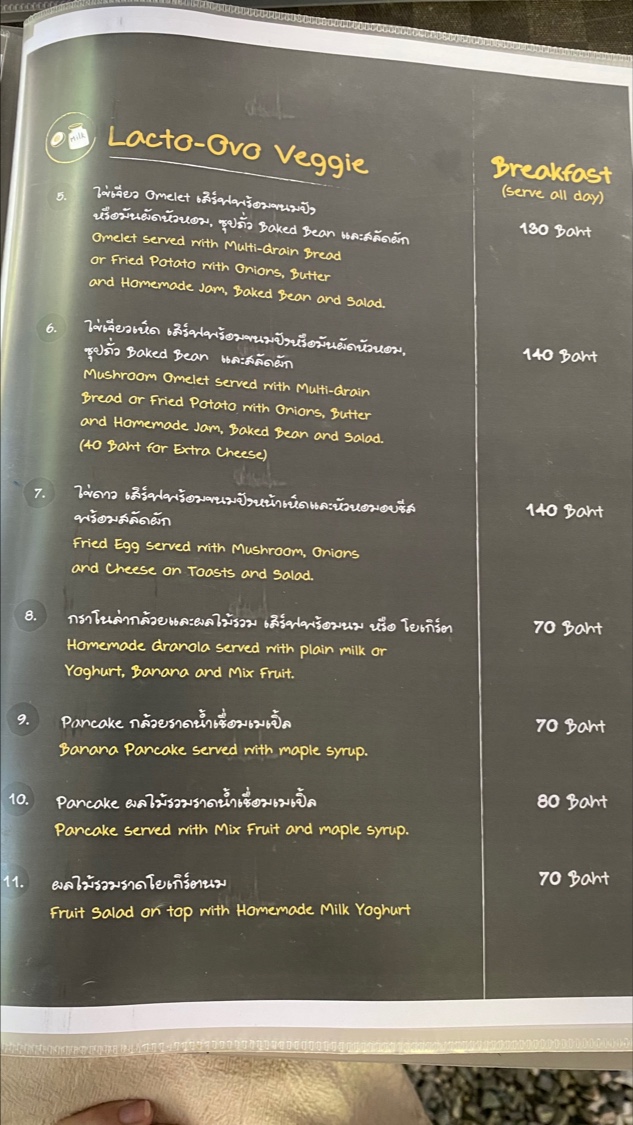 milk
Lacto-Ovo Veggie
Breakfast
(serve all day)
5. ไข่เจียว Omelet เสิร์ฟพร้อมขนมปัง
หรือมันผัดหัวหอม, ซุปถั่ว Baked Bean และสลัดผัก
130 Baht
Omelet served with Multi-Grain Bread
or Fried Potato with Onions, Butter
and Homemade Jam, Baked Bean and Salad.
6. ไข่เจียวเห็ด เสิร์ฟพร้อมขนมปังหรือมันผัดหัวหอม,
ซุปถั่ว Baked Bean และสลัดผัก
140 Baht
Mushroom Omelet served with Multi-Grain
Bread or Fried Potato with Onions, Butter
and Homemade Jam, Baked Bean and Salad.
(40 Baht for Extra Cheese)
7. ไข่ดาว เสิร์ฟพร้อมขนมปังหน้าเห็ดและหัวหอมอบชีส
พร้อมสลัดผัก
140 Baht
Fried Egg served with Mushroom, Onions
and Cheese on Toasts and Salad.
8. กราโนล่ากล้วยและผลไม้รวม เสิร์ฟพร้อมนม หรือ โยเกิร์ต
70 Baht
Homemade Granola served with plain milk or
Yoghurt, Banana and Mix Fruit.
9. Pancake กล้วยราดน้ำเชื่อมเมเปิ้ล
70 Baht
Banana Pancake served with maple syrup.
10. Pancake ผลไม้รวมราดน้ำเชื่อมเมเปิ้ล
80 Baht
Pancake served with Mix Fruit and maple syrup.
11. ผลไม้รวมราดโยเกิร์ตนม
70 Baht
Fruit Salad on top with Homemade Milk Yoghurt